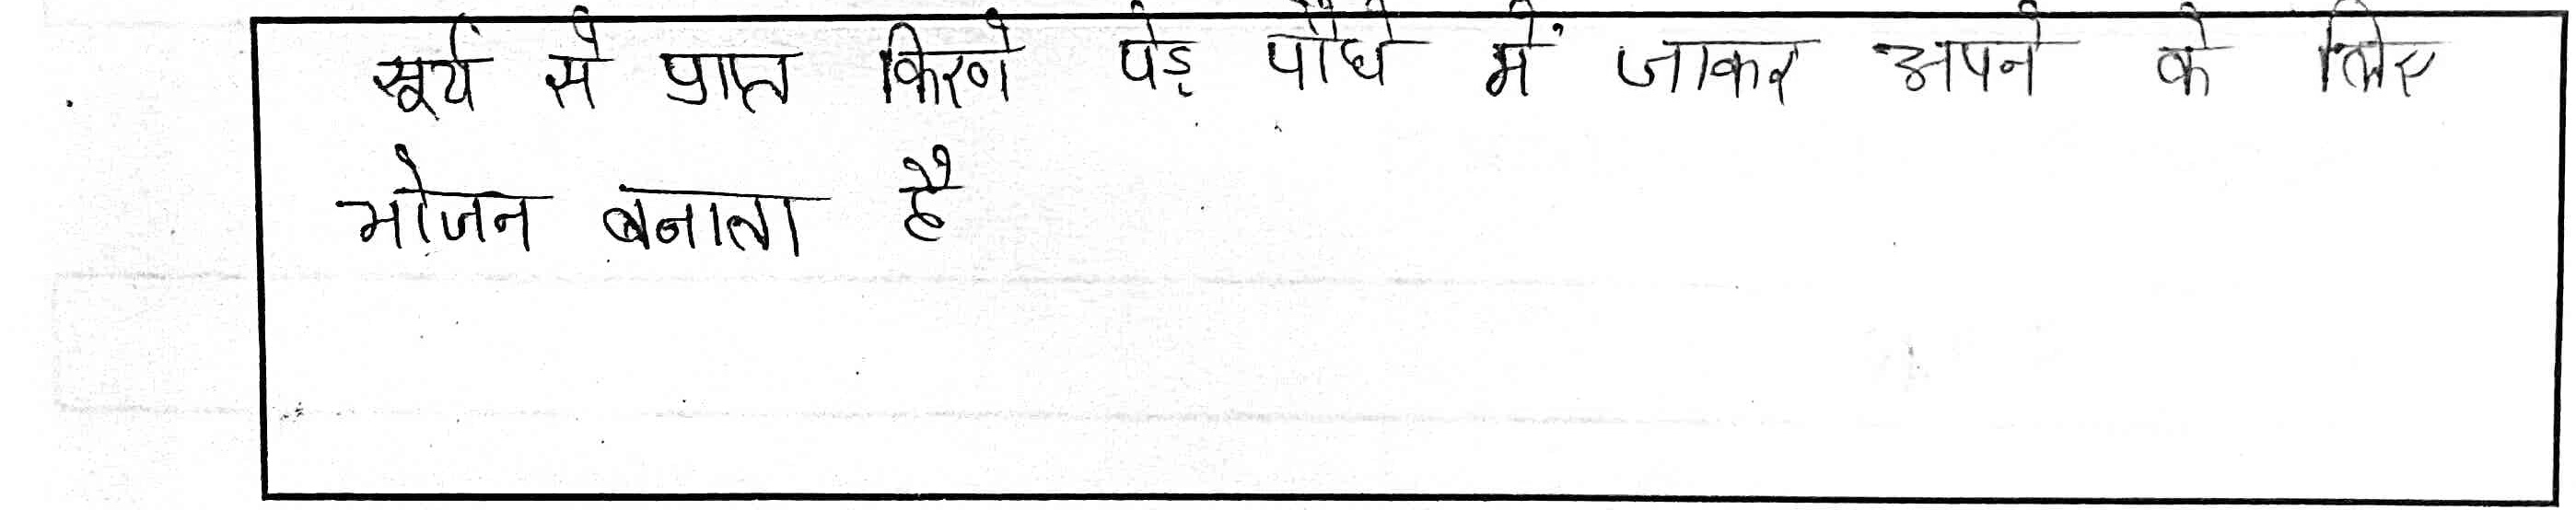 सूर्य से प्राप्त किरणे पेड़ पौधे में जाकर अपने के लिए
भोजन बनाता है